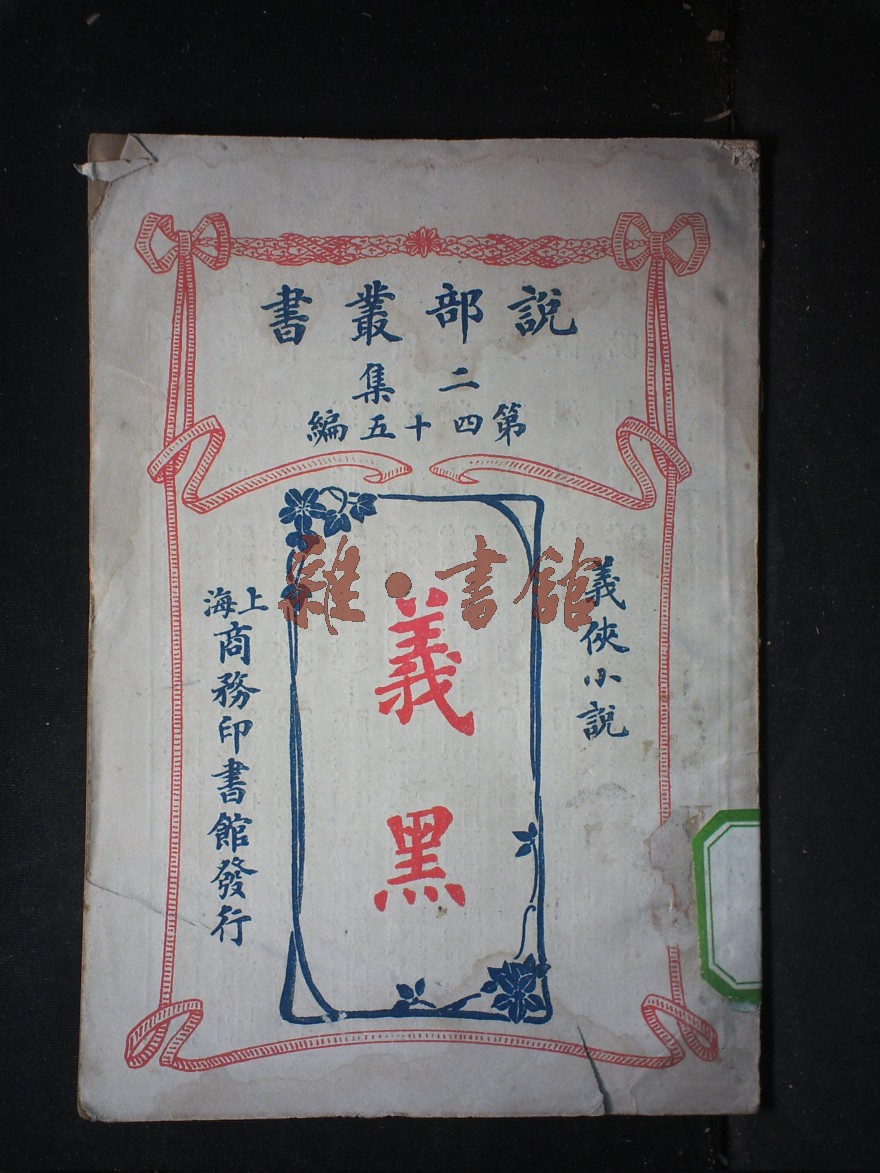 說部叢書
二集
第四十五編
義俠小說
義黑
上海商務印書館發行
雜·書館